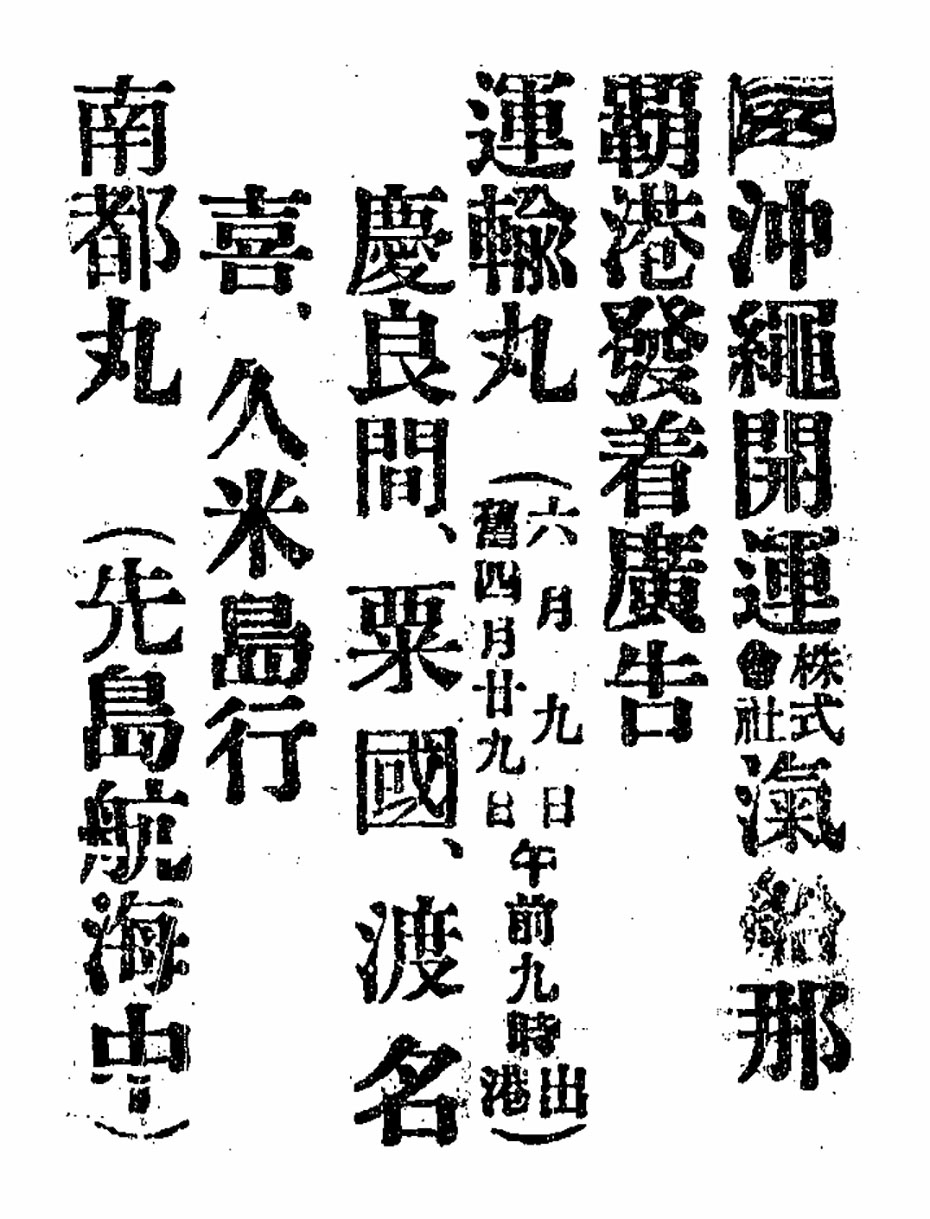 沖繩開運株式會社滊船那
覇港發着廣告
運輸丸（六月九日舊四月廿九日午前九時出港）
慶良間、粟國、渡名
喜、久米島行
南都丸（先島航海中）